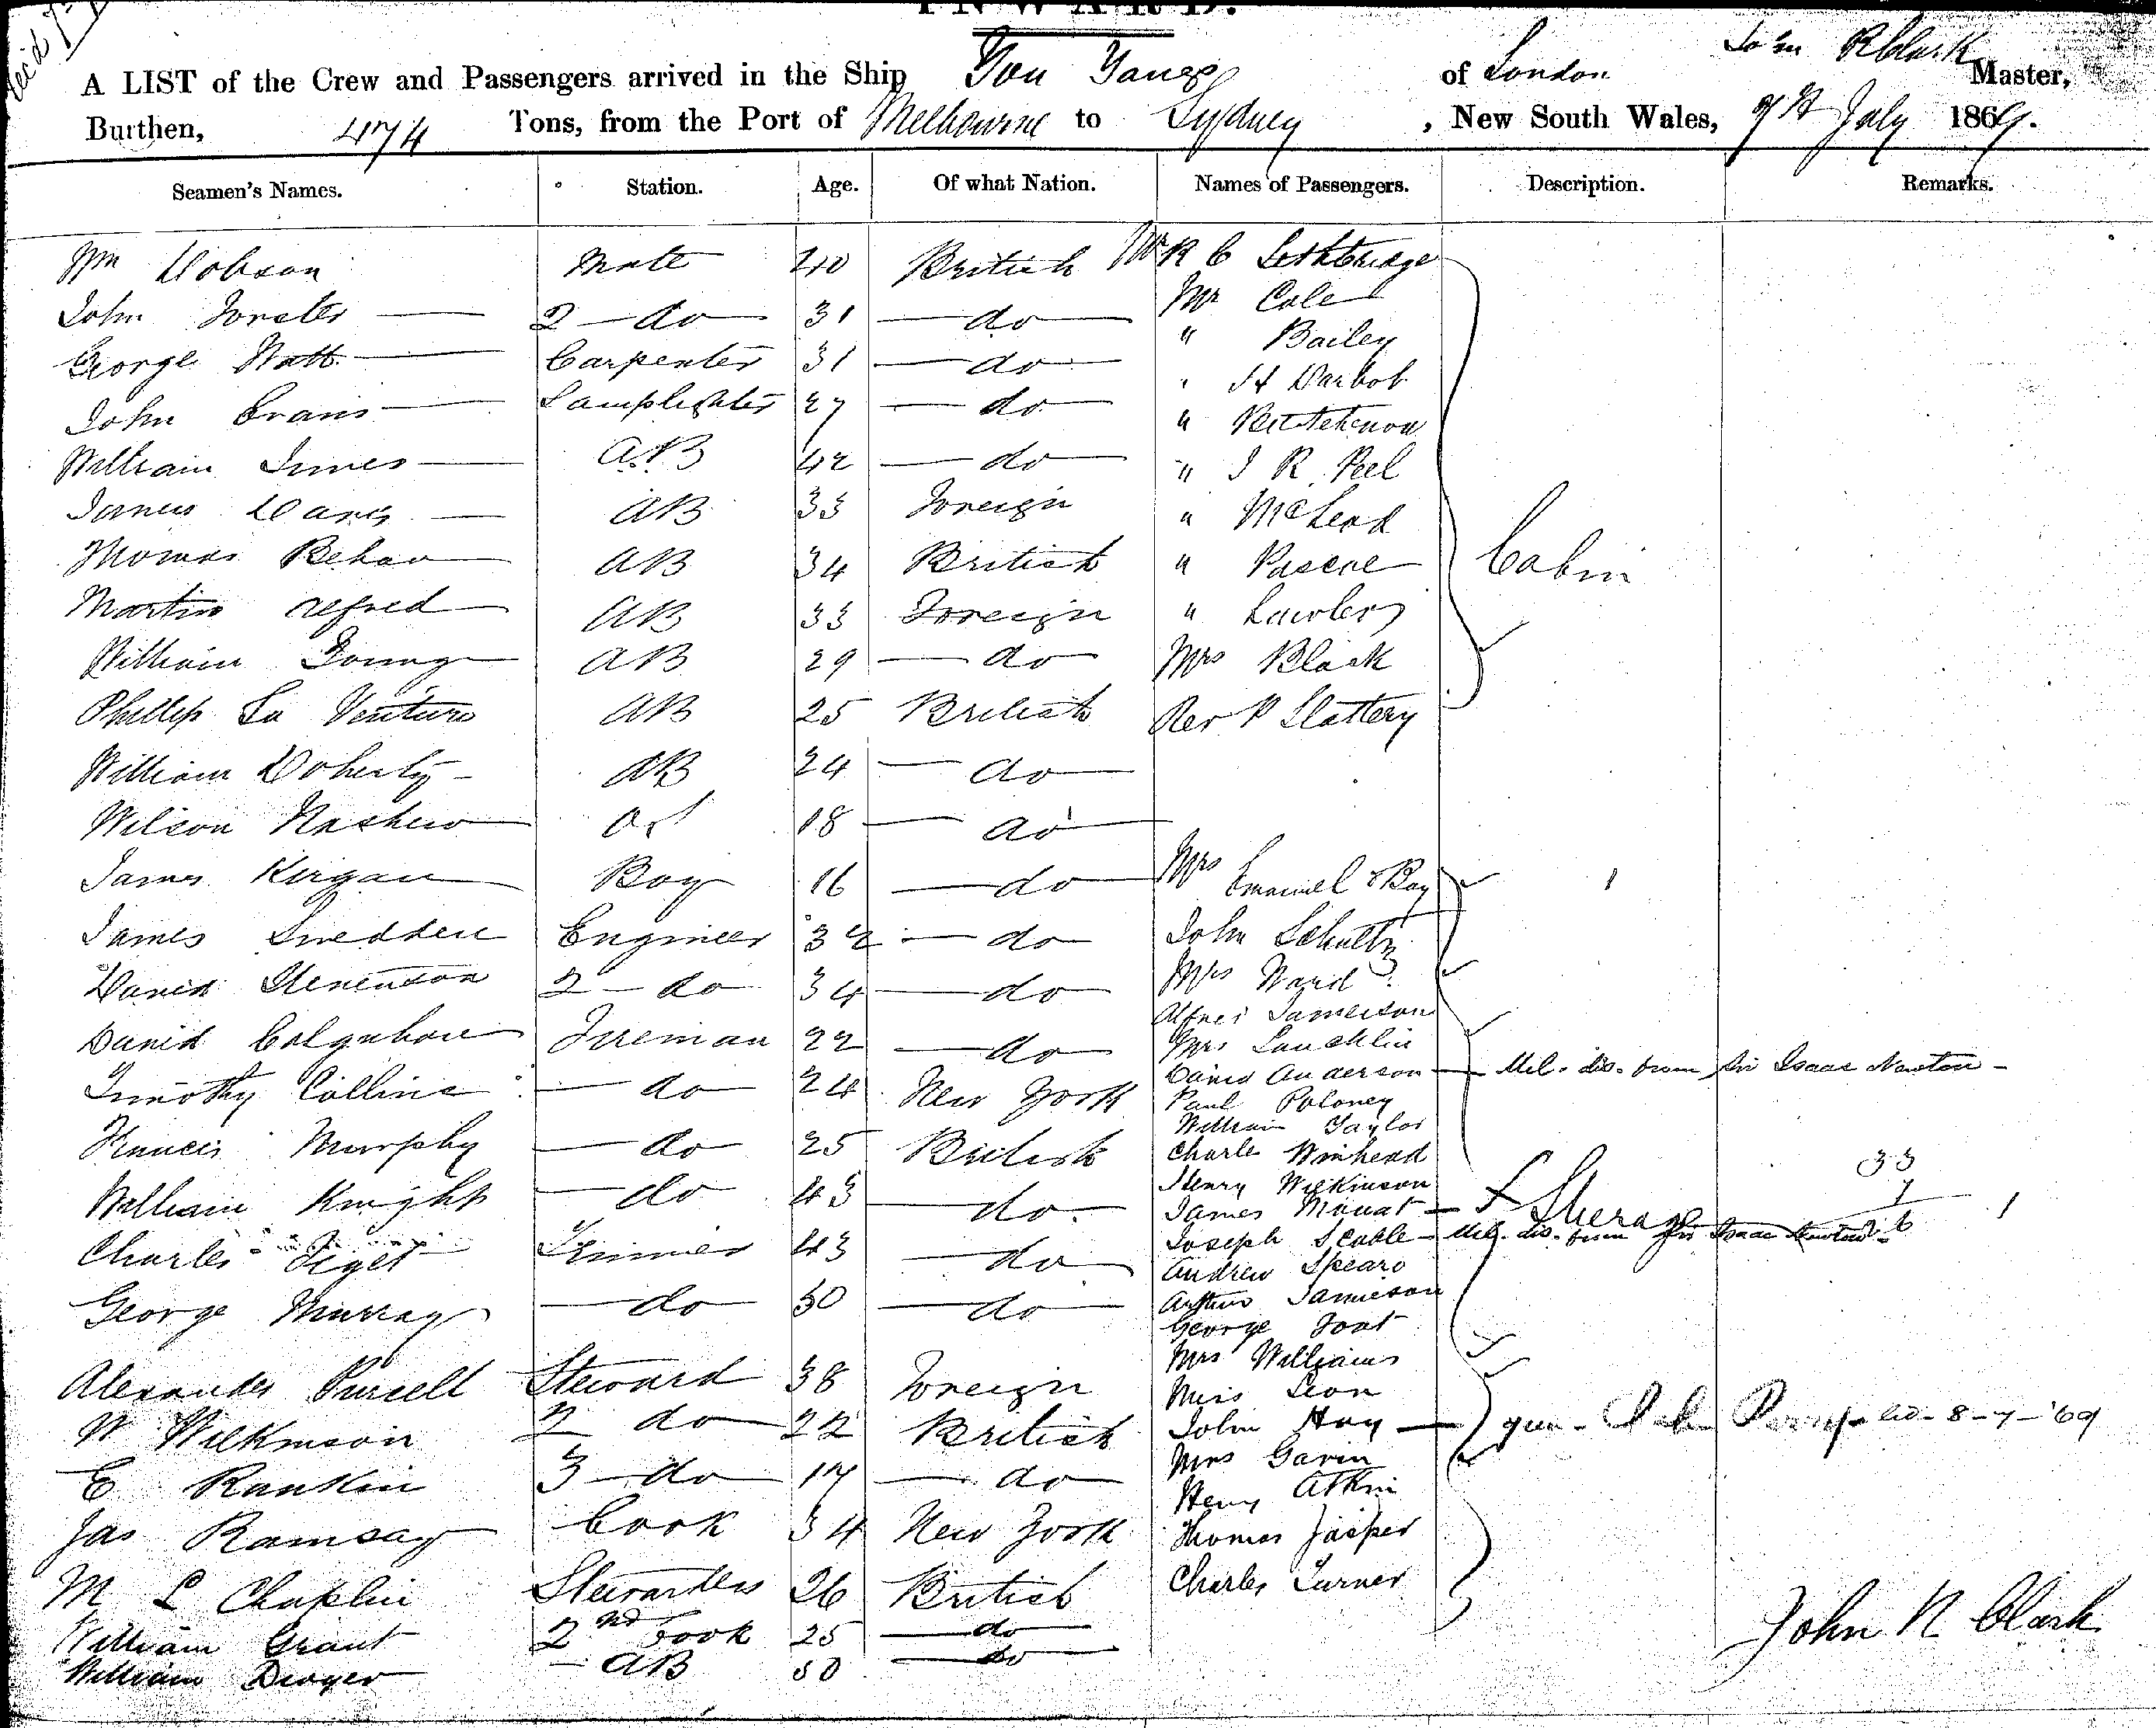 INWARD.
A LIST of the Crew and Passengers arrived in the Ship You Yangs of London John R Clark Master,
Burthen, 474 Tons, from the Port of Melbourne to Sydney, New South Wales, 9th July 1869.
Seamen's Names. Station. Age. Of what Nation. Names of Passengers. Description. Remarks.
Wm Dobson Mate 40 British Mr R C Lethbridge
John 2 do 31 do Mr Cole
George Watt Carpenter 31 do " Bailey
John Evans Lamplighter 27 do "
William Innes AB 42 do " J R Peel
James Davis AB 33 Foreign " McLeod
Thomas Behan AB 34 British " Pascoe Cabin
Martin AB 33 Foreign " Lawler
William Young AB 29 do Mrs Black
Phillip La Venture AB 25 British Rev P Slattery
William Doherty AB 24 do
Wilson 18 do
James Kirgan Boy 16 do Mrs Emanuel & Boy 1
James Snedden Engineer 32 do John Schultz
David Stevenson 2 do 34 do Mrs Ward
David Colquhoun Fireman 22 do Jamieson
Mrs Laughlin
Timothy Collins do 24 New York David Anderson Mel. dis. from Sir Isaac Newton
Paul Poloney
William Taylor
Francis Murphy do 25 British Charles Winhead
33
7
William Knight do 43 do Henry Wilkinson
James Mouat Steerage 1
Charles Trimmer 43 do Joseph Scable Mel. dis. from Sir Isaac Newton
Andrew Spears
George Murray do 30 do Arthur Jamieson
George
Mrs Williams
Alexander Purcell Steward 38 Foreign Miss Leon
W Wilkinson 2 do 22 British John Hay 8-7-'69
E Rankin 3 do 17 do Mrs Gavin
Henry Atkin
Jas Ramsay Cook 34 New York Thomas Jasper
M L Chaplin Stewardess 26 British Charles Turner
William Grant 2nd Cook 25 do
William Dwyer AB 50 do
John R Clark